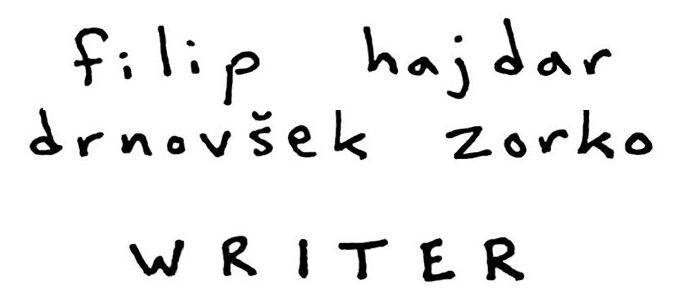 filip hajdar
drnovšek zorko
WRITER